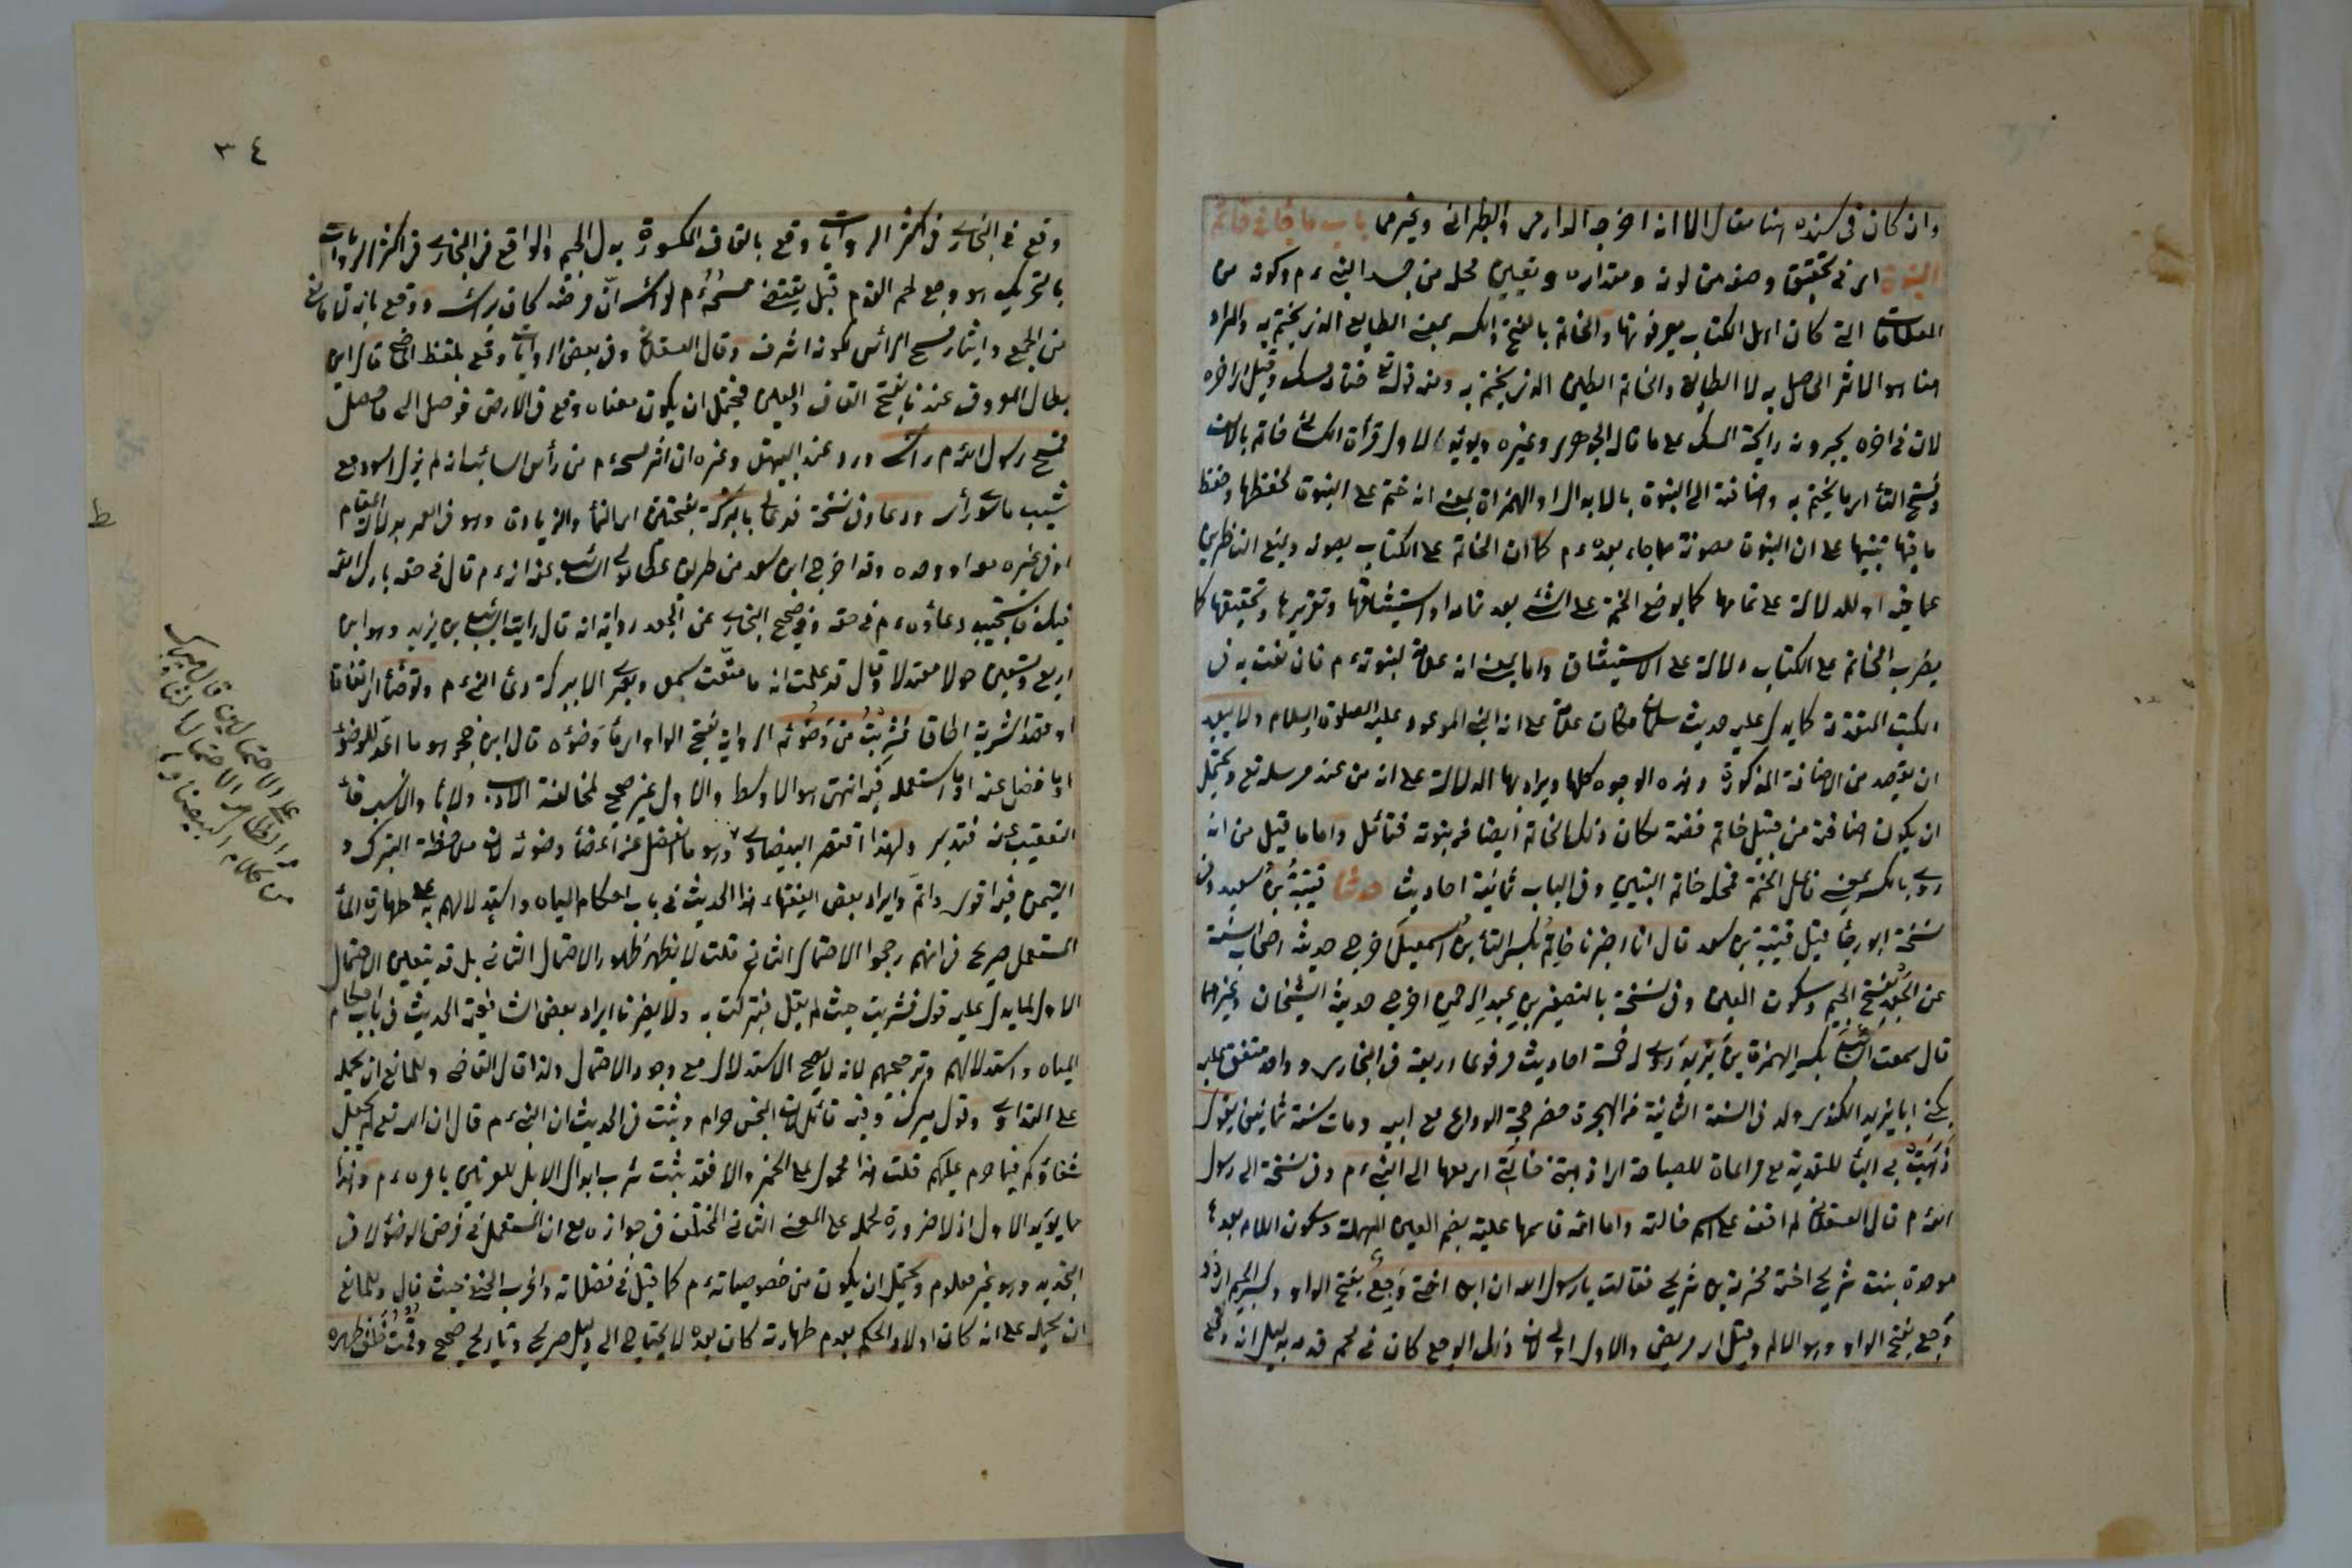 وان كان فى سنده هنا مقال الا انه اخرجه الدارمى والطبرانى وغيرهما باب ما جاء فى خاتم
النبوة اى فى تحقيق وصفه من لونه ومقداره وتعيين محله من جسد النبى ءم وكونه من
العلامات التى كان اهل الكتاب يعرفونها والخاتم بالفتح والكسر بمعنى الطابع الذى يختم به والمراد
هنا هو الاثر الحاصل به لا الطابع والخاتم الطين الذى يختم به ومنه قوله تع ختامه مسك وقيل اى اخره
لان فى اخره يجدون رايحة المسك على ما قاله الجوهرى وغيره ويؤيد الاول قرأة الكسائى خاتمه بالالف
وفتح التاء اى ما يختم به واضافته الى النبوة بالابدال او الهمزة بمعنى انه ختم على النبوة لحفظها وحفظ
ما فيها تنبيها على ان النبوة مصونة مما جاء بعده ءم كما ان الخاتم على الكتاب يصونه ويمنع الناظرين
عما فيه او للدلالة على تمامها كما يوضع الختم على الشئ بعد تمامه او استيثاقها وتقريرها وتحقيقها كما
يضرب الخاتم على الكتاب دلالة على الاستيثاق واما بمعنى انه علامة لنبوته ءم فان نعته به فى
الكتب المتقدمة كما يدل عليه حديث سلمان فكان علامة على انه النبى الموعود عليه الصلوة والسلام ولا يبعد
ان يقصد من الاضافة المذكورة هذه الوجوه كلها ويراد بها الدلالة على انه من عند مرسله تع ويحتمل
ان يكون اضافته من قبيل خاتم فضة فكان ذلك الخاتم ايضا من نبوته فتأمل واما ما قيل من انه
روى بالكسر بمعنى فاعل الختم فمحله خاتم النبيين وفى الباب ثمانية احاديث حدثنا قتيبة بن سعيد وفى
نسخة ابو رجاء قيل قتيبة بن سعد قال انا اخبرنا حاتم بكسر التاء بن اسمعيل اخرج حديثه اصحاب الستة
عن الجعد بفتح الجيم وسكون العين وفى نسخة بالتصغير بن عبد الرحمن اخرج حديثه الشيخان وغيرهما
قال سمعت السائب بكسر الهمزة بن يزيد روى له خمسة احاديث مرفوعا اربعة فى البخارى وواحد متفق عليه
يكنى ابا يزيد الكندى ولد فى السنة الثانية من الهجرة حضر حجة الوداع مع ابيه ومات سنة ثمانين يقول
ذهبت بى الباء للتعدية مع مراعاة للمصاحبة اى اذهبتنى خالتى اى معها الى النبى ءم وفى نسخة الى رسول
الله ءم قال العسقلانى لم اقف على اسم خالته واما امه فاسمها علية بضم العين المهملة وسكون اللام بعدها
موحدة بنت شريح اخت مخرمة بن شريح فقالت يا رسول الله ان ابن اختى وجع بفتح الواو وكسر الجيم اى ذو
وجع بفتح الواو وهو الالم وقيل اى مريض والاول اولى لان ذلك الوجع كان فى لحم قدمه بدليل انه وقع
٣٤
وقع فى البخارى فى اكثر الروايات وقع بالقاف المكسورة بدل الجيم والواقع فى البخارى فى اكثر الروايات
بالتحريك هو وجع لحم القدم قيل يقتضى مسحه ءم لرأسه ان مرضه كان برأسه ودفع بانه لا مانع
من الجمع وايثار مسح الرأس لكونه اشرف وقال العسقلانى وفى بعض الروايات وقع بلفظ الماضى قال ابن
بطال المعروف عندنا بفتح القاف والعين فيحتمل ان يكون معناه وقع فى الارض فوصل الى ما حصل
فمسح رسول الله ءم رأسى ورد عند البيهقى وغيره ان اثر مسحه ءم من رأس السائب لم يزل اسود مع
شيب ما سوى رأسه ودعا وفى نسخة فدعا لى بالبركة بفتحتين اى النماء والزيادة وهو فى العمر بدلالة المقام
او فى غيره معه او وحده وقد اخرج ابن سعد من طريق عطا مولى السائب عنه انه ءم قال فى حقه بارك الله
فيك فاستجيب دعاؤه ءم فى حقه وفى صحيح البخارى عن الجعد رواية انه قال رايت السائب بن يزيد وهو ابن
اربع وتسعين حولا معتدلا وقال قد علمت انه ما متعت سمعى وبصرى الا ببركة دعاء النبى ءم وتوضأ اى اتفاقا
او قصدا لشربه الخاق فشربت من وضوئه الرواية بفتح الواو اى ماء وضوئه قال ابن حجر هو ما اعد للوضوء
او ما فضل عنه او ما استعمله فيه انتهى هو الاوسط والاول غير صحيح لمخالفة الادب ولاباء والانسب فاء
التعقيب عنه فتدبر ولهذا اقتصر البيضاوى وهو ما انفصل عن اعضاء وضوئه لان ملاحظة التبرك و
التيمن فيه اقوى واتم وايراد بعض الفقهاء هذا الحديث فى باب احكام المياه واستدلالهم به على طهارة الماء
المستعمل صريح فى انهم رجحوا الاحتمال الثانى قلت لا يظهر ظهور الاحتمال الثانى بل قد يتعين الاحتمال
الاول لما يدل عليه قوله فشربت حيث لم يقل فتبركت به ولا يضرنا ايراد بعض الشافعية الحديث فى باب احكام
المياه واستدلالهم وترجيحهم لانه لا يصح الاستدلال مع وجود الاحتمال ولذا قال القاضى وللمانع ان يحمله
على التداوى وقول ميرك وفيه تأمل لان النجس حرام وثبت فى الحديث ان النبى ءم قال ان الله تع لم يجعل
شفاؤكم فيما حرم عليكم قلت هذا محمول على الخمر والا فقد ثبت شرب ابوال الابل للعرنيين بامره ءم وهذا
ما يؤيد الاول اذ لا ضرورة لحمله على المعنى الثانى المختلف فى جوازه مع ان المستعمل فى فرض الوضوء لا فى
التجديد وهو غير معلوم ويحتمل ان يكون من خصوصياته ءم كما قيل فى فضلاته واغرب الحنفى حيث قال وللمانع
ان يحمله على انه كان اولا والحكم بعدم طهارته كان بعده لا يحتاج الى دليل صريح وتاريخ صحيح وقمت خلف ظهره
ط